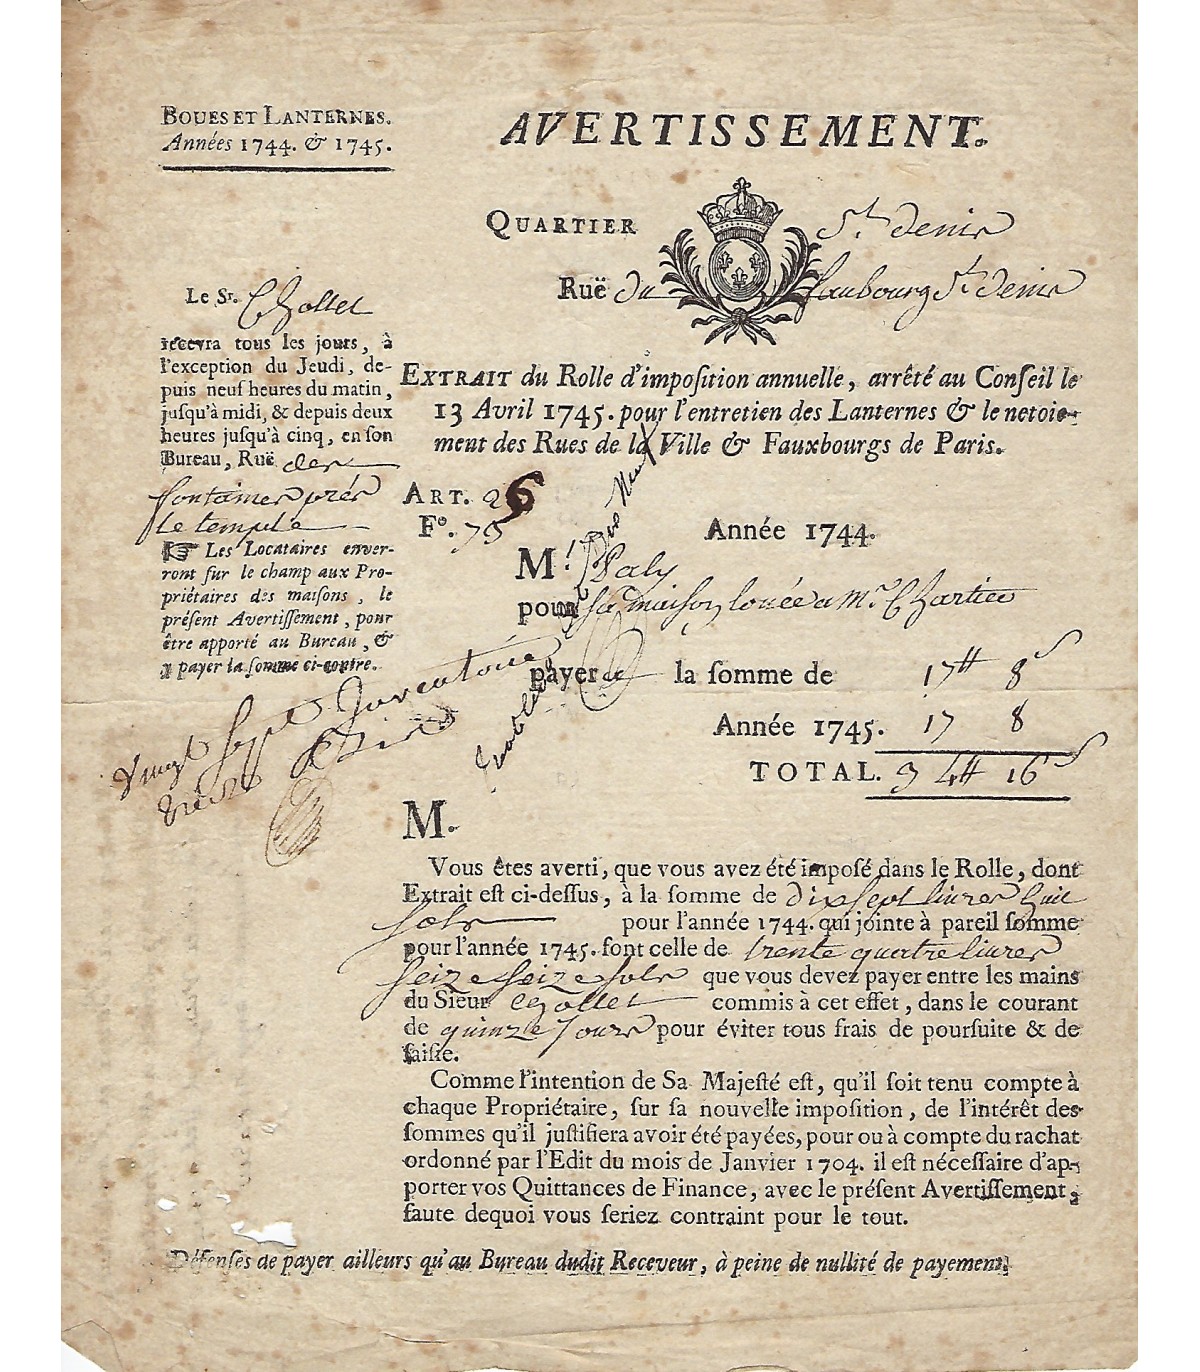 BOUES ET LANTERNES.
Années 1744. & 1745.
AVERTISSEMENT.
QUARTIER St. denis
Ruë du faubourg St. denis
Le Sr. Chollet
recevra tous les jours, à
l'exception du Jeudi, de-
puis neuf heures du matin,
jusqu'à midi, & depuis deux
heures jusqu'à cinq, en son
Bureau, Ruë des
fontaines prés
le temple
☞ Les Locataires enver-
ront sur le champ aux Pro-
priétaires des maisons, le
présent Avertissement, pour
être apporté au Bureau, &
y payer la somme ci-contre.
EXTRAIT du Rolle d'imposition annuelle, arrêté au Conseil le
13 Avril 1745. pour l'entretien des Lanternes & le netoie-
ment des Rues de la Ville & Fauxbourgs de Paris.
ART. 26
Fo. 75
Année 1744.
Mr.
pour sa maison louée a Mr. Chartier
payer la somme de 17tt 8s
Année 1745. 17 8
TOTAL. 34tt 16s
vingt sept Inventoriée
M.
Vous êtes averti, que vous avez été imposé dans le Rolle, dont
Extrait est ci-dessus, à la somme de dix sept livres huit
sols pour l'année 1744. qui jointe à pareil somme
pour l'année 1745. font celle de trente quatre livres
seize seize sols que vous devez payer entre les mains
du Sieur Chollet commis à cet effet, dans le courant
de quinze Jours pour éviter tous frais de poursuite & de
saisie.
Comme l'intention de Sa Majesté est, qu'il soit tenu compte à
chaque Propriétaire, sur sa nouvelle imposition, de l'intérêt des
sommes qu'il justifiera avoir été payées, pour ou à compte du rachat
ordonné par l'Edit du mois de Janvier 1704. il est nécessaire d'ap-
porter vos Quittances de Finance, avec le présent Avertissement,
faute dequoi vous seriez contraint pour le tout.
Défenses de payer ailleurs qu'au Bureau dudit Receveur, à peine de nullité de payement.